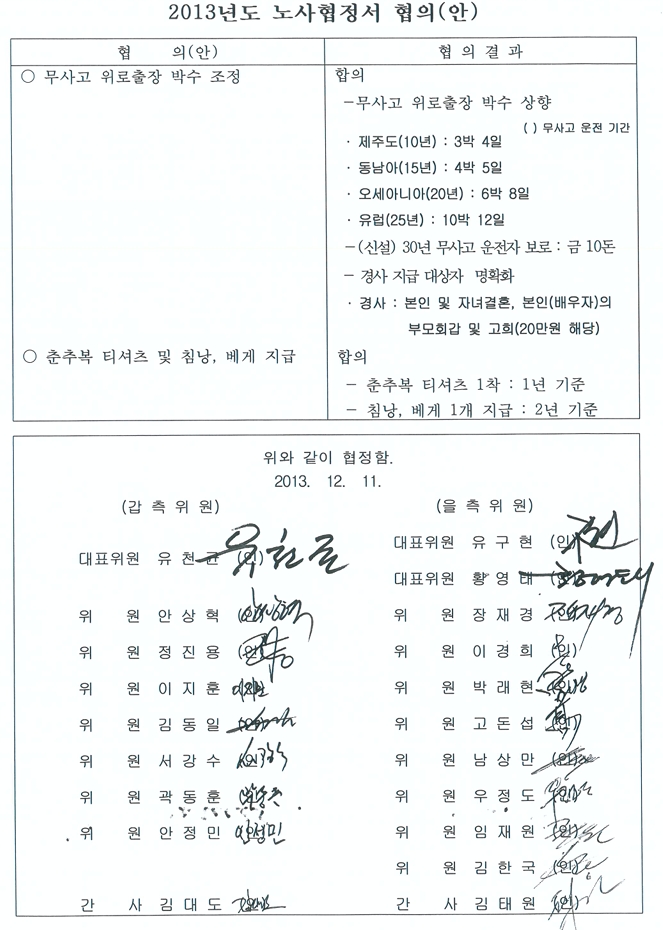 2013년도 노사협정서 협의(안)
협 의(안)
협 의 결 과
○ 무사고 위로출장 박수 조정
합의
-무사고 위로출장 박수 상향
( ) 무사고 운전 기간
· 제주도(10년) : 3박 4일
· 동남아(15년) : 4박 5일
· 오세아니아(20년) : 6박 8일
· 유럽(25년) : 10박 12일
-(신설) 30년 무사고 운전자 보로 : 금 10돈
- 경사 지급 대상자 명확화
· 경사 : 본인 및 자녀결혼, 본인(배우자)의
부모회갑 및 고희(20만원 해당)
○ 춘추복 티셔츠 및 침낭, 베게 지급
합의
- 춘추복 티셔츠 1착 : 1년 기준
- 침낭, 베게 1개 지급 : 2년 기준
위와 같이 협정함.
2013. 12. 11.
(갑 측 위 원)
대표위원 유 천 균 (인) 유천균
위 원 안 상 혁 (인)
위 원 정 진 용 (인)
위 원 이 지 훈 (인)
위 원 김 동 일 (인)
위 원 서 강 수 (인)
위 원 곽 동 훈 (인)
위 원 안 정 민
간 사 김 대 도
(을 측 위 원)
대표위원 유 구 현 (인)
대표위원 황 영 태 (인)
위 원 장 재 경 (인)
위 원 이 경 희 (인)
위 원 박 래 현 (인)
위 원 고 돈 섭 (인)
위 원 남 상 만 (인)
위 원 우 정 도 (인)
위 원 임 재 원 (인)
위 원 김 한 국 (인)
간 사 김 태 원 (인)